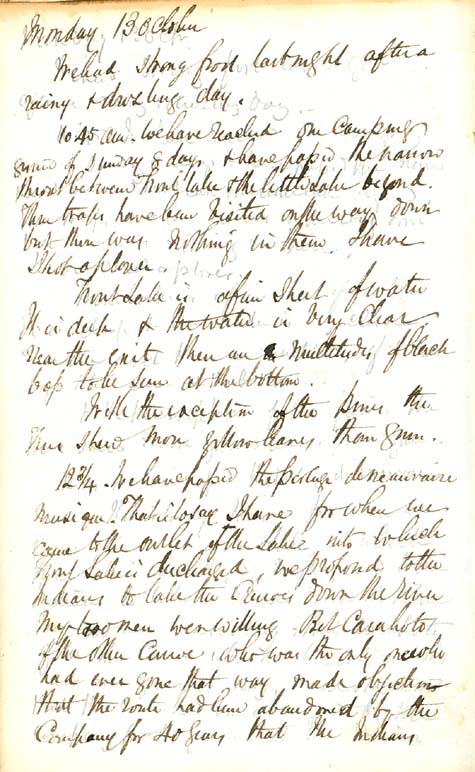 Monday, 13 October
We had strong frost last night after a
rainy & drizzling day.
10.45 am. we have reached our camping
ground of Sunday 8 days & have passed the narrow
throat between Trout lake & the little lake beyond.
Three traps have been visited on the way down
but there was nothing in them. I have
shot a plover
Trout Lake is a fine sheet of water
It is deep & the water is very clear
Near the exit there are multitudes of black
bass to be seen at the bottom.
With the exception of the pines the
trees shew more yellow leaves than green.
12 3/4. We have passed the portage de mauvaise
musique. That is to say I have for when we
came to the outlet of the Lake into which
Trout Lake is discharged, we proposed to the
Indians to take the Canoes down the river
My two men were willing But
of the other Canoe who was the only one who
had ever gone that way made objections
that the route had been abandoned by the
Company for 40 years that the Indians